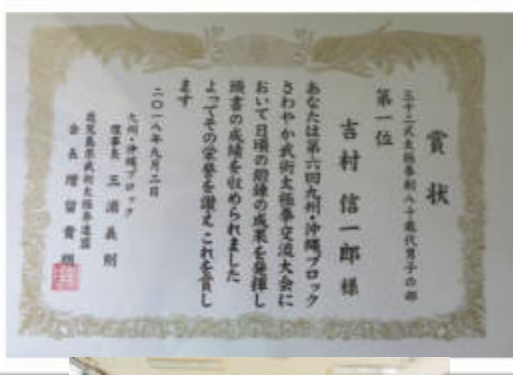 賞状
三十二式太極拳剣八十歳代男子の部
第一位
吉村信一郎 様
あなたは第六回九州・沖縄ブロック
さわやか武術太極拳交流大会に
おいて日頃の鍛錬の成果を発揮し
頭書の成績を収められました
よってその栄誉を讃えこれを賞し
ます
二〇一八年九月二日
九州・沖縄ブロック
理事長 三浦義則
鹿児島県武術太極拳連盟
会長 増留貴